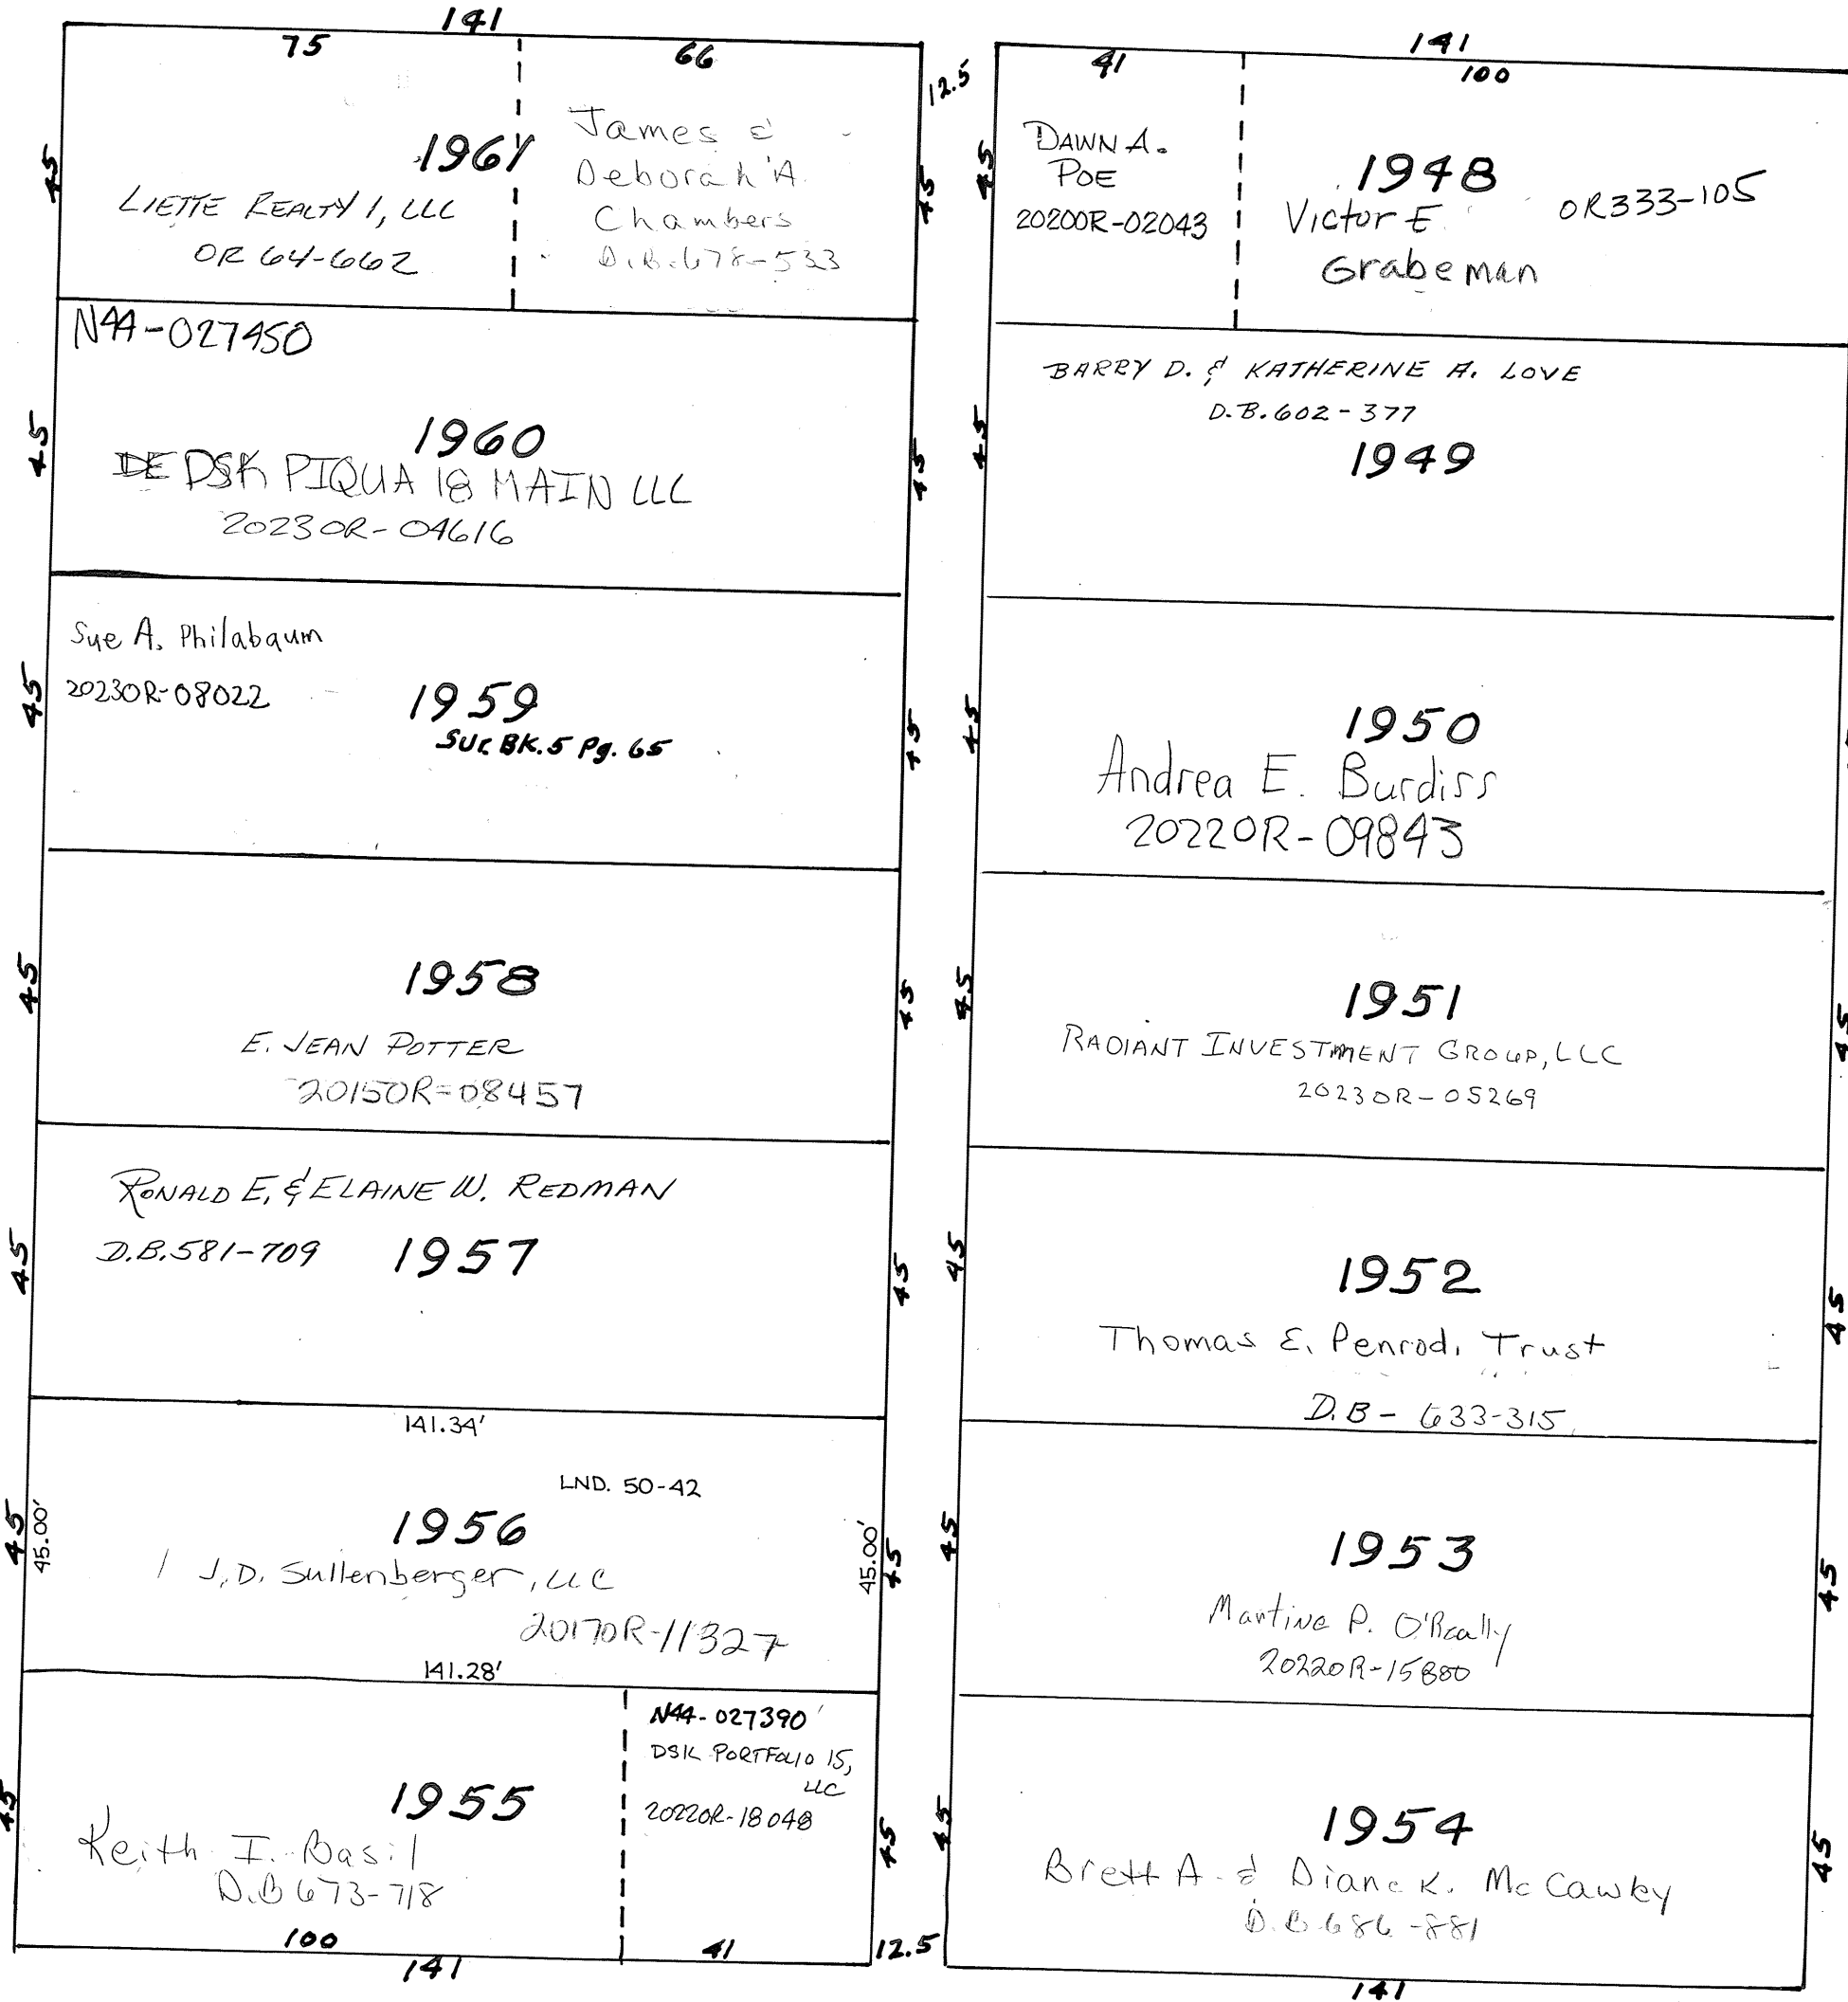 141
75
66
45
1961
James &
Deborah A.
Chambers
D.B. 678-533
LIETTE REALTY 1, LLC
OR 64-662
45
12.5
N44-027450
45
1960
DE DSK PIQUA 18 MAIN LLC
2023OR-04616
45
Sue A. Philabaum
2023OR-08022
45
1959
Sur. BK. 5 Pg. 65
45
45
1958
E. JEAN POTTER
2015OR-08457
45
RONALD E. & ELAINE W. REDMAN
D.B. 581-709
1957
45
45
141.34'
LND. 50-42
45
45.00'
1956
J.D. Sullenberger, LLC
2017OR-11327
45.00'
45
141.28'
45
1955
Keith I. Basil
D.B 673-718
N44-027390
DSK PORTFOLIO 15,
LLC
2022OR-18048
45
100
41
12.5
141
141
41
100
45
DAWN A.
POE
2020OR-02043
1948
Victor E.
Grabeman
OR333-105
BARRY D. & KATHERINE A. LOVE
D.B. 602-377
45
1949
45
1950
Andrea E. Burdiss
2022OR-09843
45
1951
RADIANT INVESTMENT GROUP, LLC
2023OR-05269
45
45
1952
Thomas E. Penrod, Trust
D.B - 633-315
45
45
1953
Martina P. O'Really
2022OR-15880
45
45
1954
Brett A. & Diane K. McCawley
D.B 686-881
45
141